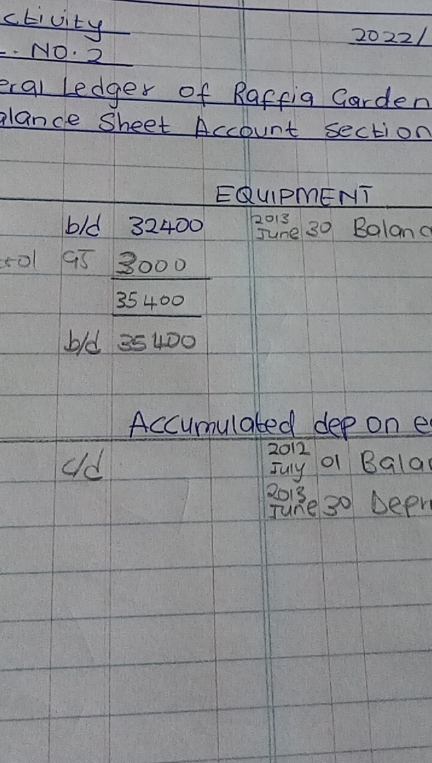 ctivity
NO. 2 2022/
eral Ledger of Raffia Garden
alance Sheet Account section
EQUIPMENT
b/d 32400 2013 June 30 Balanc
rol GJ 3000
35400
b/d 35400
Accumulated dep on e
c/d 2012 July 01 Bala
2013 June 30 Depr